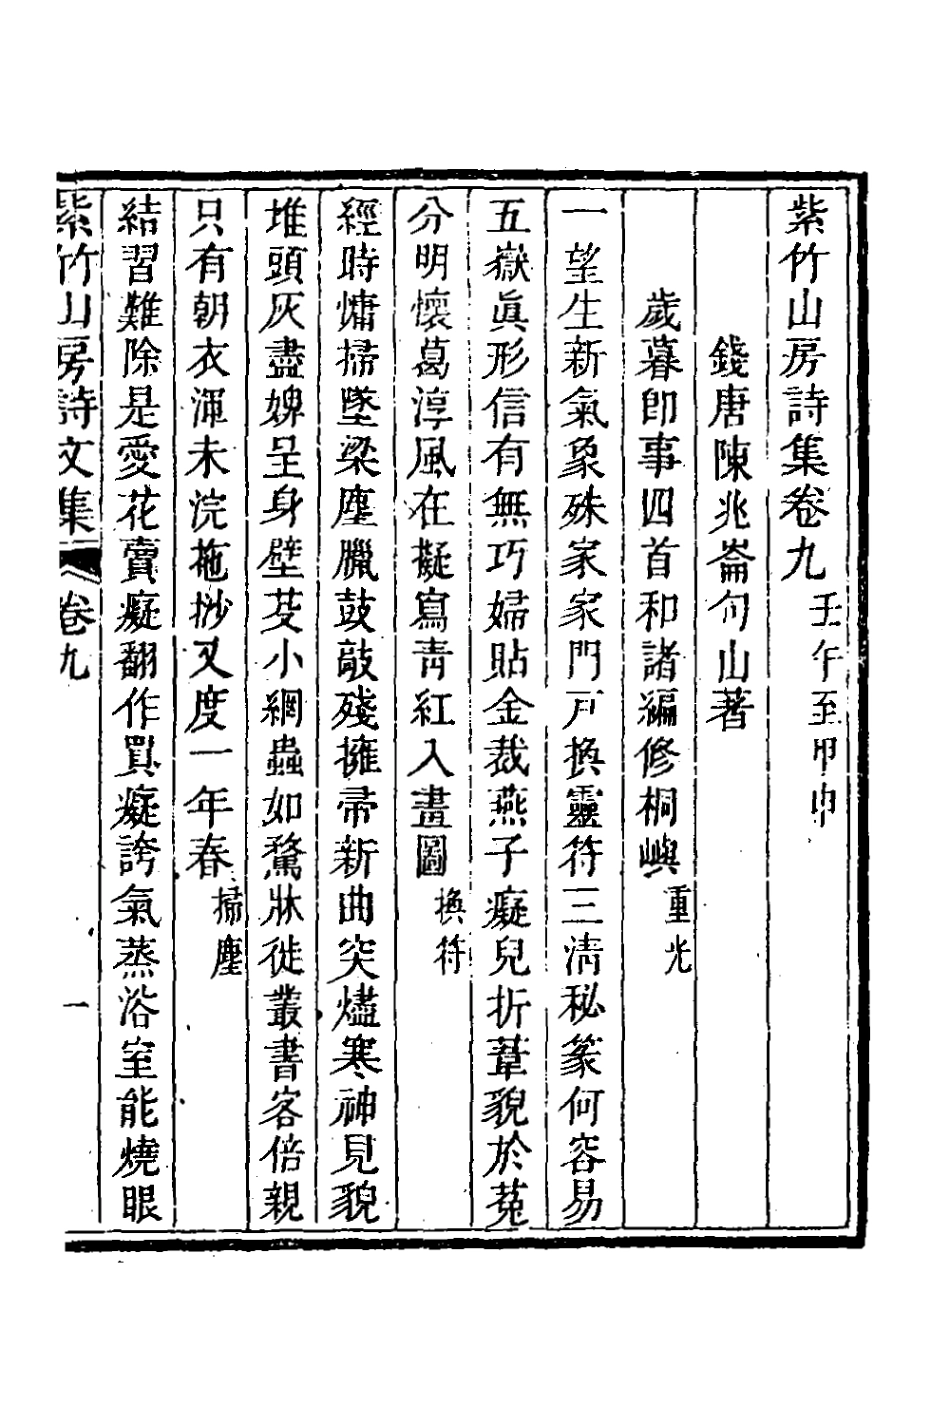 紫竹山房詩集卷九壬午至甲申
錢唐陳兆崙句山著
歲暮卽事四首和諸編修桐嶼重光
一望生新氣象殊家家門戸換靈符三淸秘篆何容易
五嶽眞形信有無巧婦貼金裁燕子癡兒折葦貌於菟
分明懷葛淳風在擬寫靑紅入畫圖換符
經時慵掃墜梁塵臘鼓敲殘擁帚新曲突燼寒神見貌
堆頭灰盡婢呈身壁芟小網蟲如騖牀徙叢書客倍親
只有朝衣渾未浣拖挱又度一年春掃塵
結習難除是愛花賣癡翻作買癡誇氣蒸浴室能燒眼
紫竹山房詩文集卷九
一